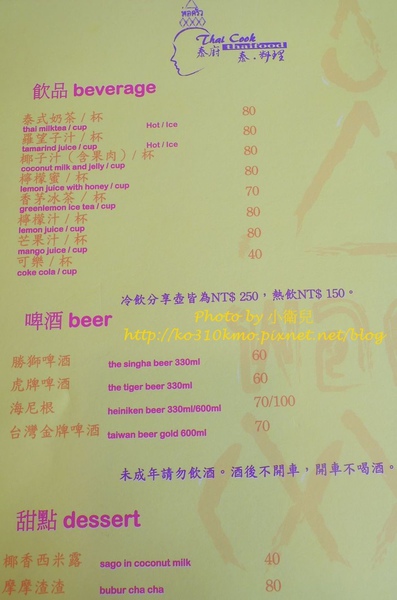 Thai Cook
泰廚 thaifood
泰.料理
飲品 beverage
泰式奶茶 / 杯 80
thai milktea / cup Hot / Ice
羅望子汁 / 杯 80
tamarind juice / cup Hot / Ice
椰子汁（含果肉）/ 杯 80
coconut milk and jelly / cup
檸檬蜜 / 杯 80
lemon juice with honey / cup
香茅冰茶 / 杯 70
greenlemon ice tea / cup
檸檬汁 / 杯 80
lemon juice / cup
芒果汁 / 杯 80
mango juice / cup
可樂 / 杯 40
coke cola / cup
冷飲分享壺皆為NT$ 250，熱飲NT$ 150。
啤酒 beer
Photo by 小衛兒
http://ko310kmo.pixnet.net/blog
勝獅啤酒 the singha beer 330ml 60
虎牌啤酒 the tiger beer 330ml 60
海尼根 heiniken beer 330ml/600ml 70/100
台灣金牌啤酒 taiwan beer gold 600ml 70
未成年請勿飲酒。酒後不開車，開車不喝酒。
甜點 dessert
椰香西米露 sago in coconut milk 40
摩摩渣渣 bubur cha cha 80